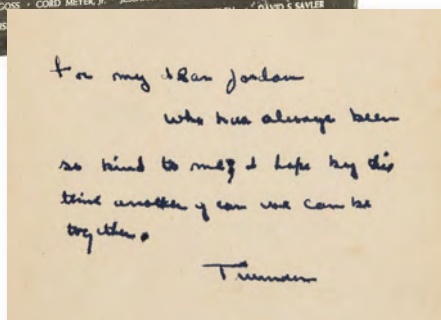 GOSS · CORD MEYER, JR. · DAVID S. SAVLER
For my dear Jordan
who has always been
so kind to me & I hope by this
time another year we can be
together.
Truman